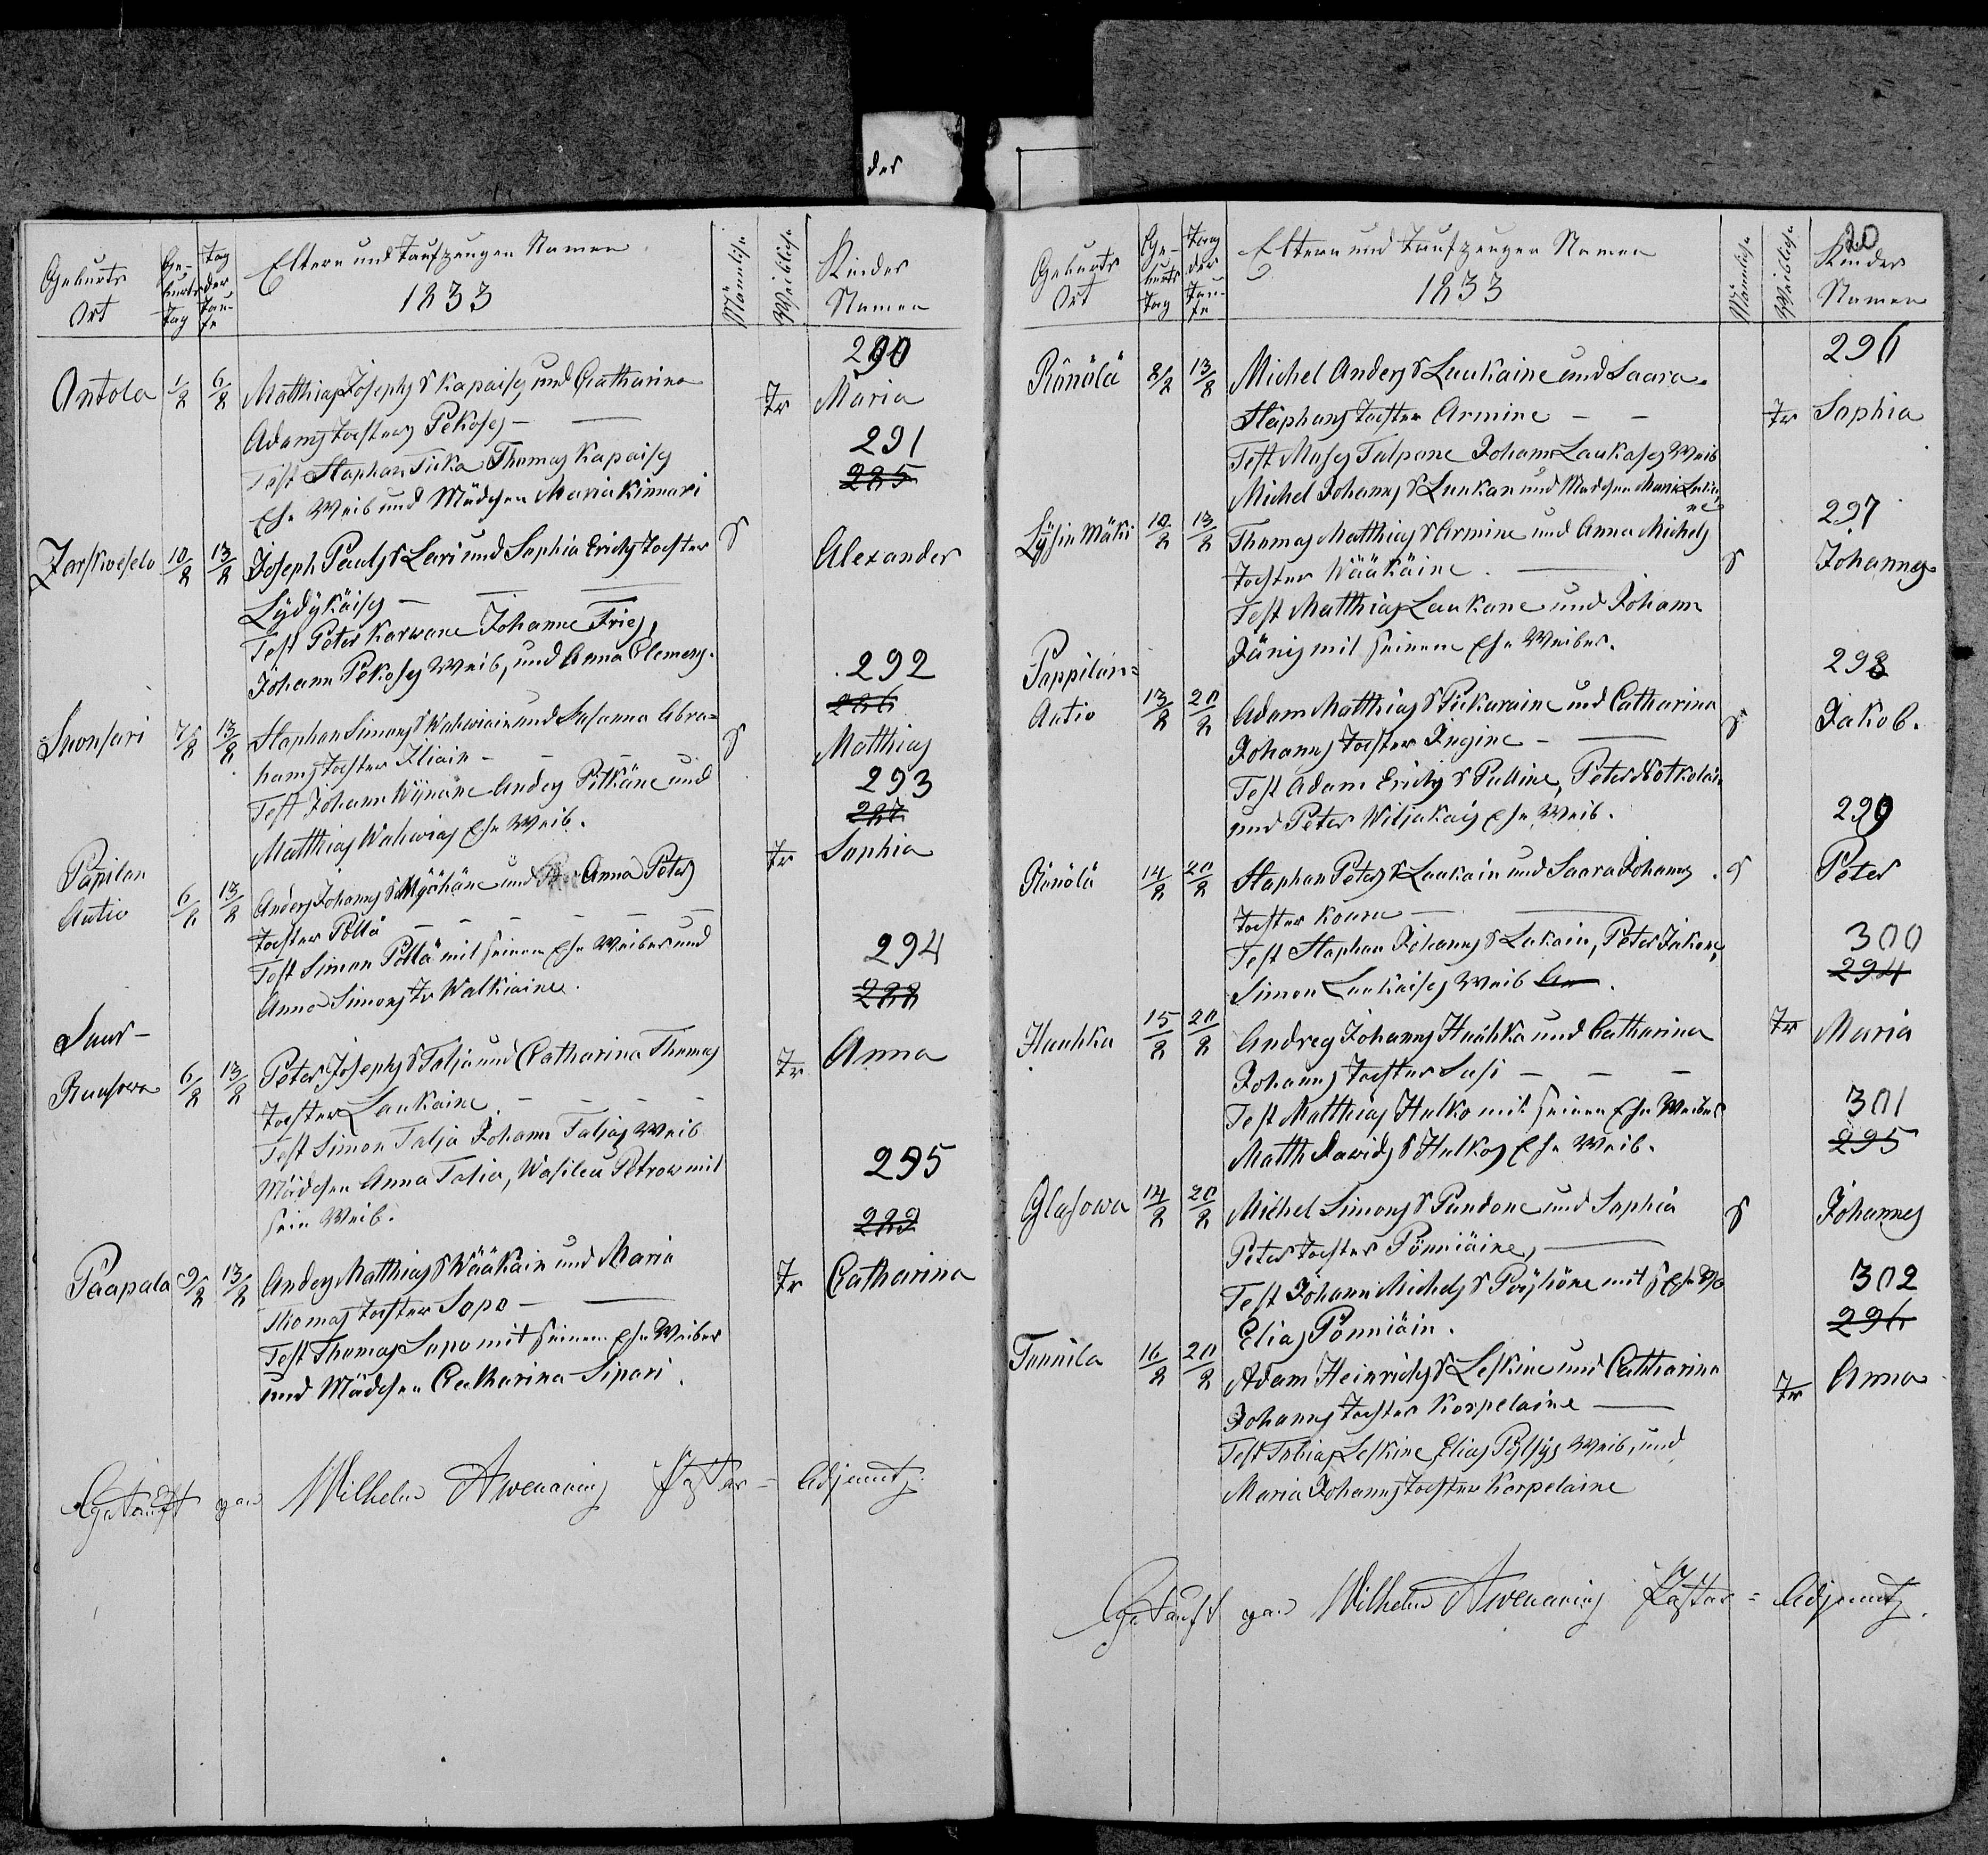 der
Geburts Ort
Geburts Tag
Tag der Taufe
Eltern und Taufzeugen Namen
1833
Männlich
Weiblich
Kinder Namen
290
Antola 1/2 6/2 Matthias Josephs S Kapaises und Catharina Tr Maria
Adams Tochter Pekoses – —
Test Staphan Tuka Thomas Kapaises
Ehe Weib und Mädchen Maria Kinnari
291
285
Zarskoeselo 10/2 13/2 Joseph Pauls S Lari und Sophia Erichs Tochter S Alexander
Lydykäises – — —
Test Peter Karwane Johanne Fries,
Johann Pekoses Weib, und Anna Clemens.
292
286
Suonsari 7/2 13/2 Staphan Simons S Wahwiain und Susanna Abra= S Matthias
hams Tochter Iliain – – –
Test Johann Wynäne Anders Pitkäne und
Matthias Wahwias Ehe Weib.
293
287
Papilan
Autio 6/2 13/2 Anders Johanns S Myöhäne und Anna Peters Tr Sophia
Tochter Pöllä – – – – –
Test Simon Pöllä mit seinem Ehe Weiber und
Anna Simons Tr Walkiaine.
294
288
Suur-
Ruasowa 6/2 13/2 Peter Josephs S Talja und Catharina Thomas Tr Anna
Tochter Laukaine – – – –
Test Simon Talja Johann Taljas Weib
Mädchen Anna Talia, Wasilei Petrow mit
sein Weib.
295
289
Paapala 9/2 13/2 Anders Matthias S Wääkäin und Maria Tr Catharina
Thomas Tochter Sopo – —
Test Thomas Sopo mit seinem Ehe Weiber
und Mädchen Catharina Sipari.
Getauft von Wilhelm Awenarius Pastor = Adjunct.
20
Geburts Ort
Geburts Tag
Tag der Taufe
Eltern und Taufzeugen Namen
1833
Männlich
Weiblich
Kinder Namen
296
Rönölä 8/2 13/2 Michel Anders S Laukaine und Saara
Staphans Tochter Armine – – Tr Sophia
Test Moses Talpone Johann Laukoses Weib
Michel Johanns S Laukan und Mädchen Maria
297
Lysin Mäki 10/2 13/2 Thomas Matthias S Armine und Anna Michels S Johannes
Tochter Wääkäine. —
Test Matthias Laukane und Johann
Jänis mit seinem Ehe Weiber.
298
Pappilan=
Autio 13/2 20/2 Adam Matthias S Pukaraine und Catharina S Jakob.
Johanns Tochter Ingine – —
Test Adam Erichs S Pulline, Peter Notkolain
und Peter Wiljakais Ehe Weib.
299
Rönölä 14/2 20/2 Staphan Peters S Laukain und Saara Johanns S Peter
Tochter Koura – —
Test Staphan Johanns S Lukain, Peter Jakone,
Simon Laukaises Weib
300
294
Hauhka 15/2 20/2 Andreas Johanns Hauhka und Catharina Tr Maria
Johanns Tochter Susi – – –
Test Matthias Hulko mit seinem Ehe Weiber
Matth Dawids S Hulkos Ehe Weib.
301
295
Glasowa 14/2 20/2 Michel Simons S Pundone und Sophia S Johannes
Peter Tochter Pönniäine, —
Test Johann Michels S Pöyhöne mit s Ehe W
Elias Pönniäin.
302
296
Tunnila 16/2 20/2 Adam Heinrichs S Leskine und Catharina Tr Anna
Johanns Tochter Korpelaine —
Test Tobias Leskine Elias Weib, und
Maria Johanns Tochter Korpelaine
Getauft von Wilhelm Awenarius Pastor = Adjunct.